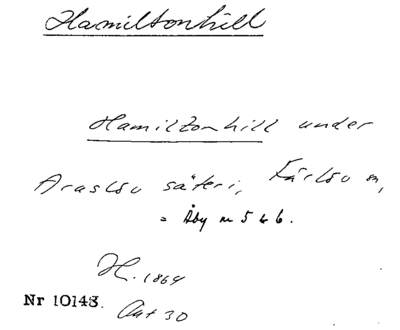 Hamiltonhill
Hamiltonhill under
Araslöv säteri, Färlöv sn,
= Åby nr 5 & 6.
H. 1864
Nr 10148.
Ant 30